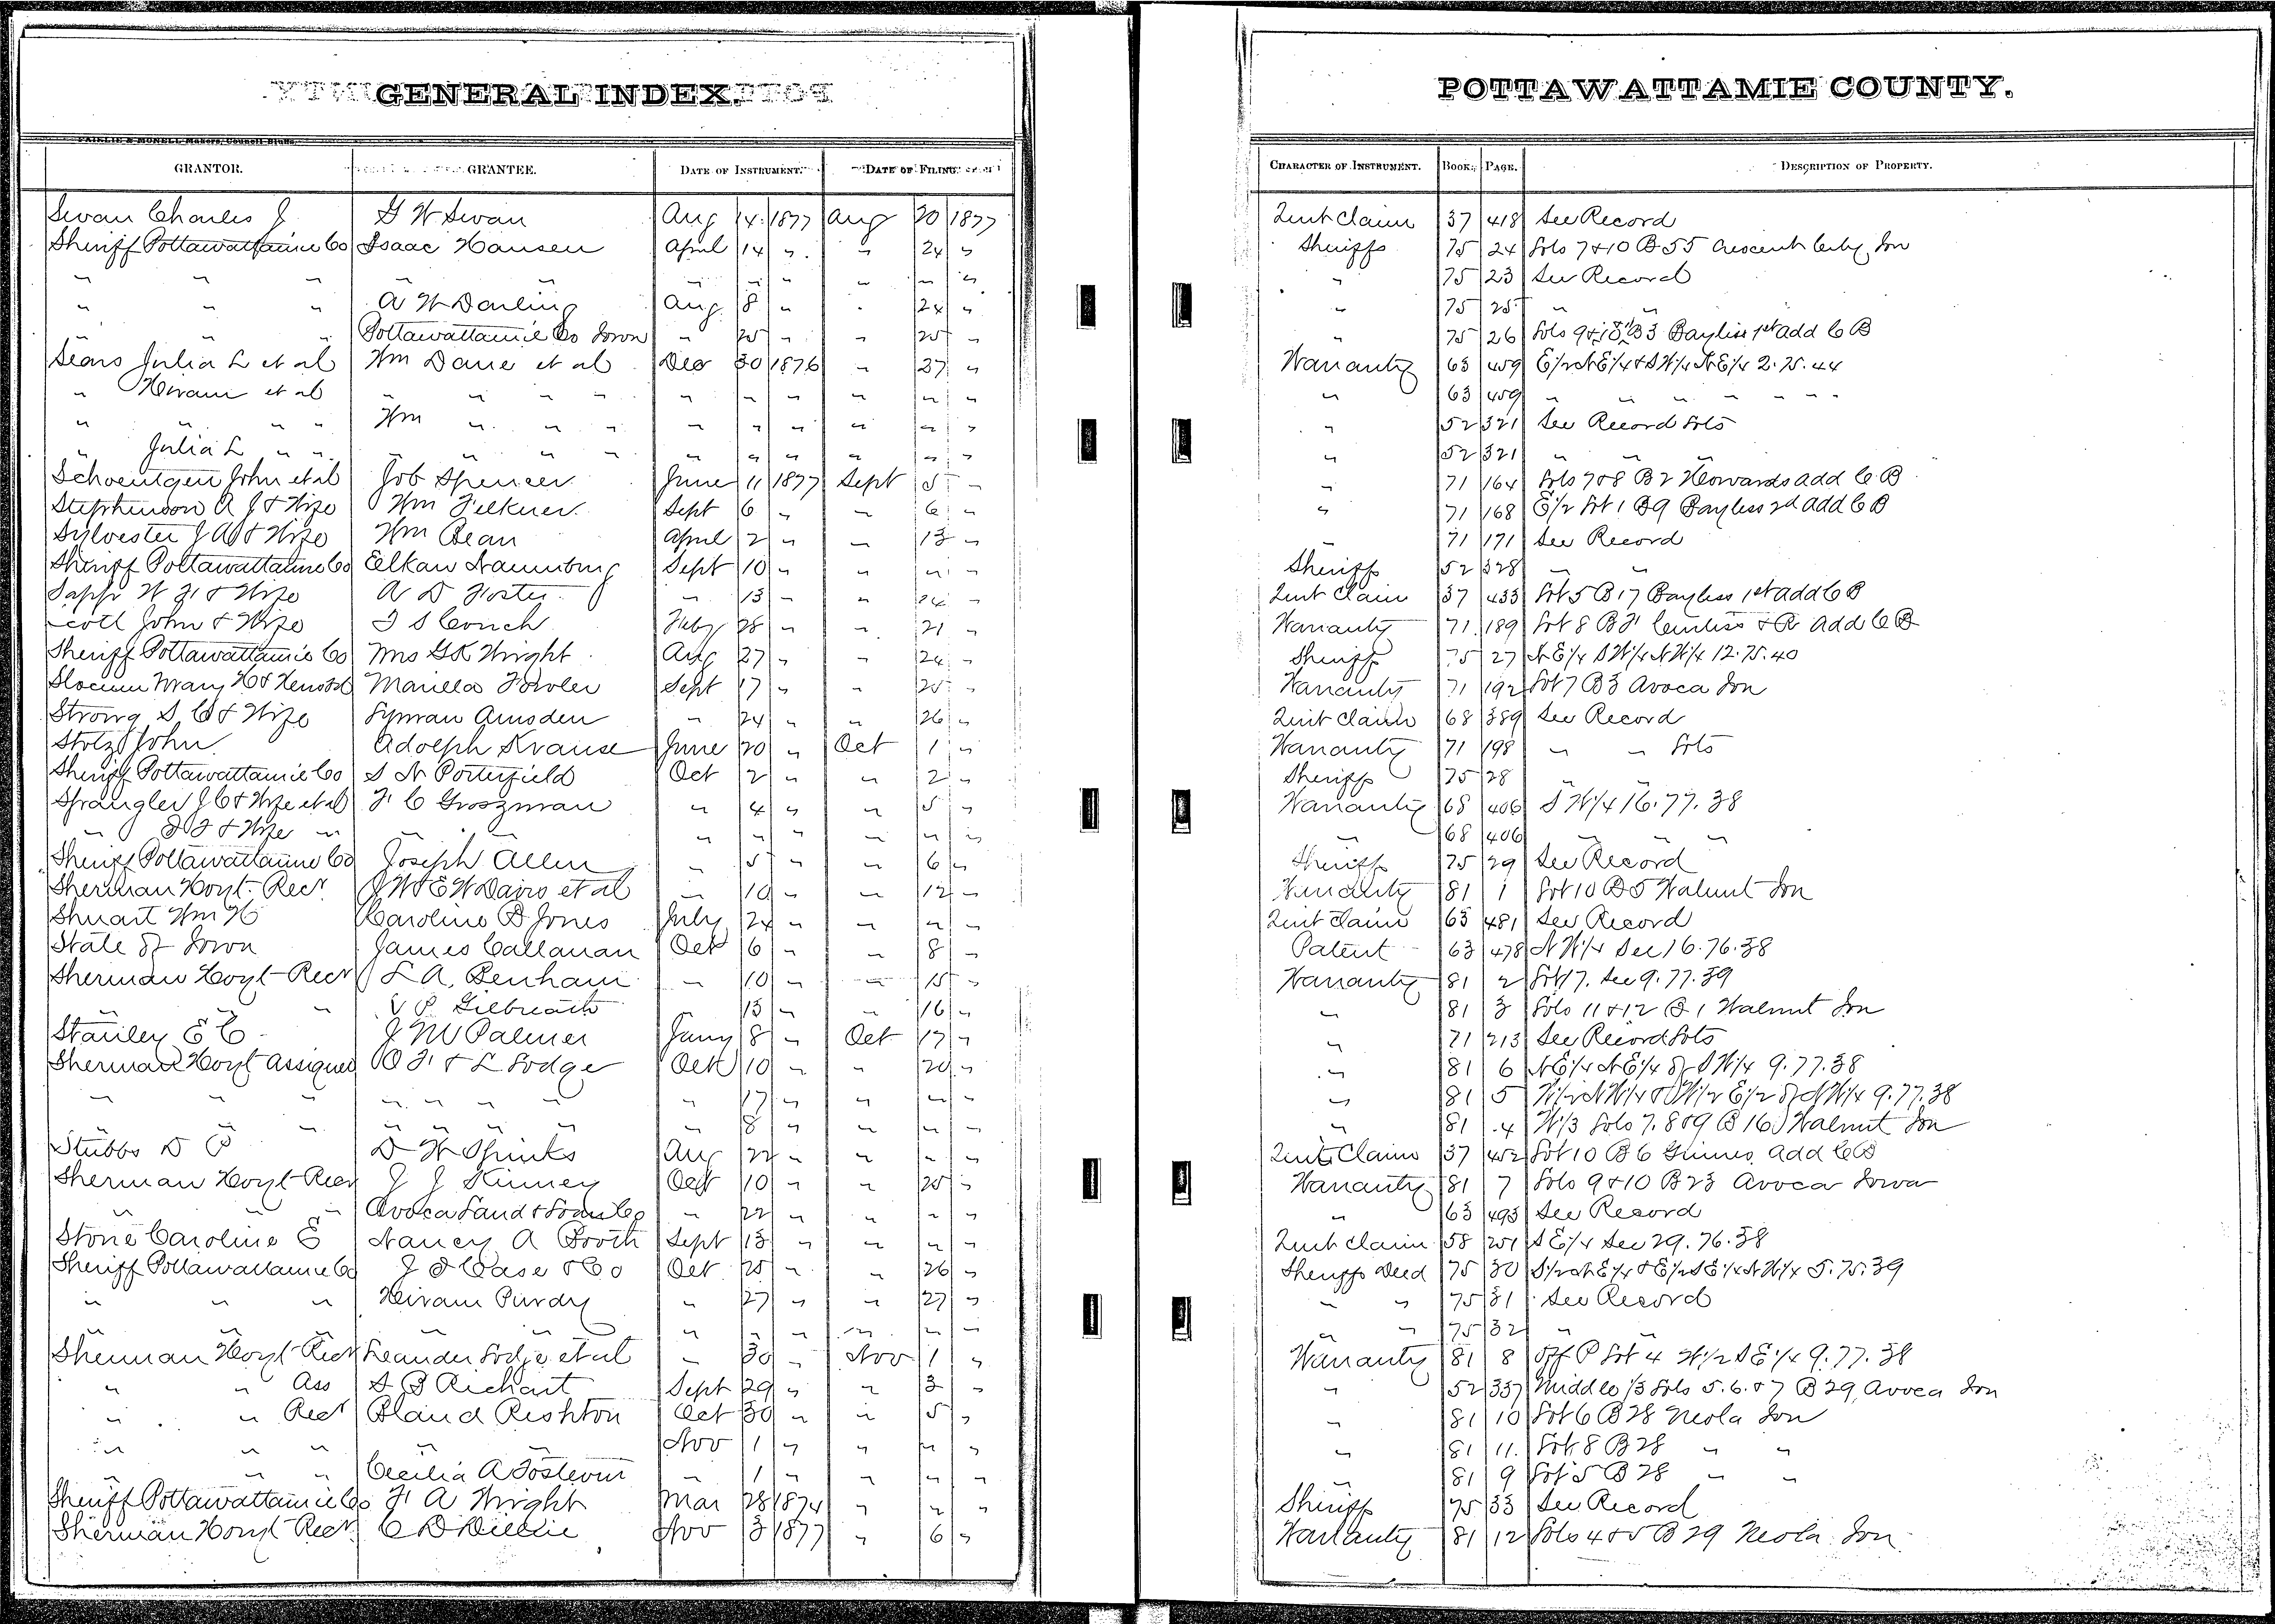 GENERAL INDEX.
POTTAWATTAMIE COUNTY.
GRANTOR. GRANTEE. DATE OF INSTRUMENT. DATE OF FILING. CHARACTER OF INSTRUMENT. BOOK. PAGE. DESCRIPTION OF PROPERTY.
Swan Charles J G W Swan Aug 14 1877 Aug 20 1877 Quit Claim 37 418 See Record
Sheriff Pottawattamie Co Isaac Hansen April 14 " " 24 " Sheriffs 75 24 Lots 7 & 10 B 55 Crescent City Ion
" " " " " " " " " " " 75 23 See Record
" " " A W Darling Aug 8 " " 24 " " 75 25 " "
" " " Pottawattamie Co Iowa " 25 " " 25 " " 75 26 Lots 9 & 10 B 3 Bayliss 1st add C B
Sears Julia L et al Wm Dane et al Dec 30 1876 " 27 " Warranty 63 459 E1/2 NE1/4 & SW1/4 NE1/4 2.75.44
" Hiram et al " " " " " " " " " " " 63 459 " " " " "
" " " " Wm " " " " " " " " " " 52 321 See Record Lots
" Julia L " " " " " " " " " " " " " 52 321 " "
Schoentgen John et al Job Spencer June 11 1877 Sept 5 " " 71 164 Lots 7 & 8 B 2 Howards add C B
Stephenson A J & Wife Wm Felkner Sept 6 " " 6 " " 71 168 E1/2 Lot 1 B 9 Bayless 2d add C B
Sylvester J A & Wife Wm Bean April 2 " " 13 " " 71 171 See Record
Sheriff Pottawattamie Co Elkan Naumburg Sept 10 " " " " Sheriff 52 328 " "
Sapp W F & Wife A D Foster " 13 " " 24 " Quit Claim 37 433 Lot 5 B 17 Bayless 1st add C B
Scott John & Wife I S Couch Feby 28 " " 21 " Warranty 71 189 Lot 8 B F Curtiss & R add C B
Sheriff Pottawattamie Co Mrs G K Wright Aug 27 " " 24 " Sheriff 75 27 NE1/4 SW1/4 NW1/4 12.75.40
Slocum Mary H & Marilla Fowler Sept 17 " " 25 " Warranty 71 192 Lot 7 B 3 Avoca Ion
Strong S C & Wife Lyman Amsden " 24 " " 26 " Quit Claim 68 389 See Record
Stolz John Adolph Krause June 20 " Oct 1 " Warranty 71 198 " " Lots
Sheriff Pottawattamie Co S N Porterfield Oct 2 " " 2 " Sheriff 75 28 " "
Spangler J C & Wife et al F C Groszman " 4 " " 5 " Warranty 68 406 SW1/4 16.77.38
" & Wife " " " " " " " " 68 406 " " "
Sheriff Pottawattamie Co Joseph Allen " 5 " " 6 " Sheriff 75 29 See Record
Sherman Hoyt Recr J W & E W Davis et al " 10 " " 12 " Warranty 81 1 Lot 10 B 5 Walnut Ion
Stuart Wm H Caroline B Jones July 24 " " " " Quit Claim 63 481 See Record
State of Iowa James Callanan Oct 6 " " 8 " Patent 63 478 NW1/4 Sec 16.76.38
Sherman Hoyt Recr L A Benham " 10 " " 15 " Warranty 81 2 Lot 7. Sec 9.77.39
" " " V P Gilbreath " 13 " " 16 " " 81 3 Lots 11 & 12 B 1 Walnut Ion
Stanley E C J M Palmer Jany 8 " Oct 17 " " 71 213 See Record Lots
Sherman Hoyt Assignee O F & L Lodge Oct 10 " " 20 " " 81 6 NE1/4 NE1/4 of SW1/4 9.77.38
" " " " " " " " 17 " " " " " 81 5 W1/2 NW1/4 & W1/2 E1/2 of NW1/4 9.77.38
" " " " " " " " 8 " " " " " 81 4 W1/3 Lots 7, 8 & 9 B 16 Walnut Ion
Stubbs D P D W Spinks Aug 22 " " " " Quit Claim 37 452 Lot 10 B 6 Grimes add C B
Sherman Hoyt Recr J J Kinney Oct 10 " " 25 " Warranty 81 7 Lots 9 & 10 B 23 Avoca Iowa
" " " Avoca Land & Loan Co " 22 " " " " " 63 493 See Record
Stone Caroline E Nancy A Booth Sept 13 " " " " Quit Claim 58 251 SE1/4 Sec 29.76.38
Sheriff Pottawattamie Co J I Case & Co Oct 25 " " 26 " Sheriffs Deed 75 30 S1/2 NE1/4 & E1/2 SE1/4 NW1/4 5.75.39
" " " Hiram Purdy " 27 " " 27 " " " 75 31 See Record
" " " " " " " " " " " " " 75 32 " "
Sherman Hoyt Recr Leander Lodge et al " 30 " Nov 1 " Warranty 81 8 Off P Lot 4 W1/2 SE1/4 9.77.38
" " Ass S B Richart Sept 29 " " 3 " " 52 337 Middle 1/3 Lots 5.6. & 7 B 29 Avoca Ion
" " Recr Bland Rishton Oct 30 " " 5 " " 81 10 Lot 6 B 28 Neola Ion
" " " " " Nov 1 " " " " " 81 11 Lot 8 B 28 " "
" " " Cecilia A Tostevin " 1 " " " " " 81 9 Lot 5 B 28 " "
Sheriff Pottawattamie Co F A Wright Mar 28 1874 " " " Sheriff 75 33 See Record
Sherman Hoyt Recr C D Dillie Nov 3 1877 " 6 " Warranty 81 12 Lots 4 & 5 B 29 Neola Ion